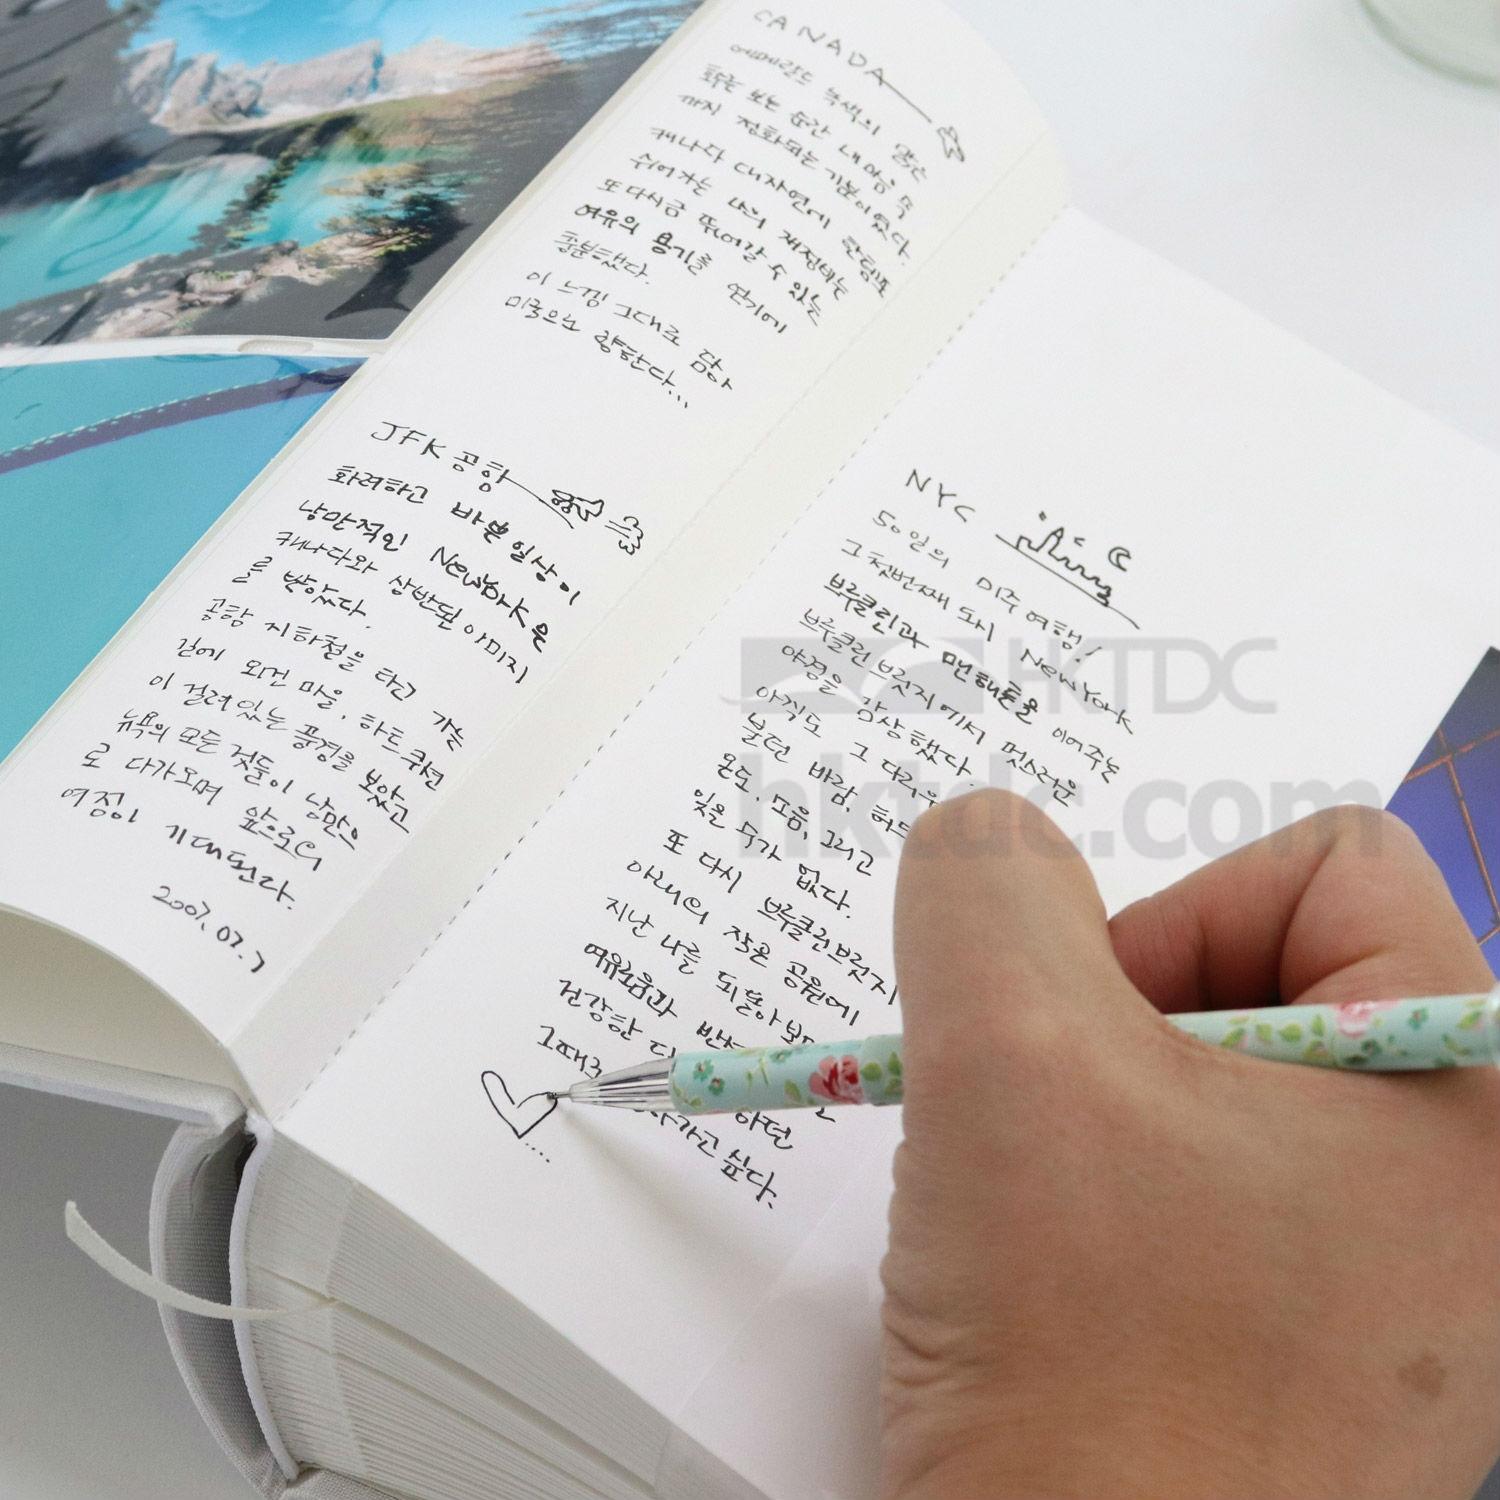 CANADA
에메랄드 녹색의 맑은
호수는 보는 순간 내 마음 속
까지 정화되는 기분이었다.
캐나다 대자연에 한템포
쉬어가는 나의 재정비는
또 다시금 뛰어갈 수 있는
여유의 용기를 얻기에
충분했다.
이 느낌 그대로 담아
미국으로 향한다...
JFK 공항
화려하고 바쁜 일상이
낭만적인 NewYork은
캐나다와 상반된 이미지
를 받았다.
공항 지하철을 타고 가는
길에 외진 마을, 하트쿠션
이 걸려있는 풍경을 보았고
뉴욕의 모든 것들이 낭만으
로 다가오며 앞으로의
여정이 기대된다.
2007.07.7
NYC
50일의 미주 여행!
그 첫번째 도시 NewYork
브루클린과 맨해튼을 이어주는
브루클린 브릿지에서 멋스러운
야경을 감상했다.
아직도 그 다리위
불던 바람, 허드
온도, 모음, 그리고
잊을 수가 없다.
또 다시 브루클린브릿지
아래의 작은 공원에
지난 나를 되돌아보며
여유로움과
건강한
그때로 하던
싶다.
HKTDC
hktdc.com